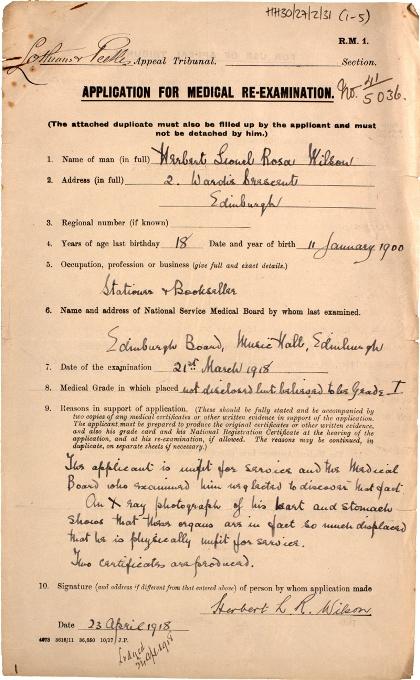 HH30/27/2/31 (1-5)
R.M. 1.
Lothians & Peebles Appeal Tribunal. Section.
No. 41/5036.
APPLICATION FOR MEDICAL RE-EXAMINATION.
(The attached duplicate must also be filled up by the applicant and must
not be detached by him.)
1. Name of man (in full) Herbert Lionel Rosa Wilson
2. Address (in full) 2. Wardie Crescent
Edinburgh
3. Regional number (if known)
4. Years of age last birthday 18 Date and year of birth 11 January 1900
5. Occupation, profession or business (give full and exact details.)
Stationer & Bookseller
6. Name and address of National Service Medical Board by whom last examined.
Edinburgh Board, Music Hall, Edinburgh
7. Date of the examination 21st March 1918
8. Medical Grade in which placed not disclosed but believed to be Grade I
9. Reasons in support of application. (These should be fully stated and be accompanied by
two copies of any medical certificates or other written evidence in support of the application.
The applicant must be prepared to produce the original certificates or other written evidence,
and also his grade card and his National Registration Certificate at the hearing of the
application, and at his re-examination, if allowed. The reasons may be continued, in
duplicate, on separate sheets if necessary.)
The applicant is unfit for service and the Medical
Board who examined him neglected to discover that fact
An X ray photograph of his heart and stomach
shows that these organs are in fact so much displaced
that he is physically unfit for service.
Two certificates are produced.
10. Signature (and address if different from that entered above) of person by whom application made
Herbert L. R. Wilson
Date 23 April 1918
4073 3616/11 36,550 10/27 J.P.
Lodged
24 Apl 1918